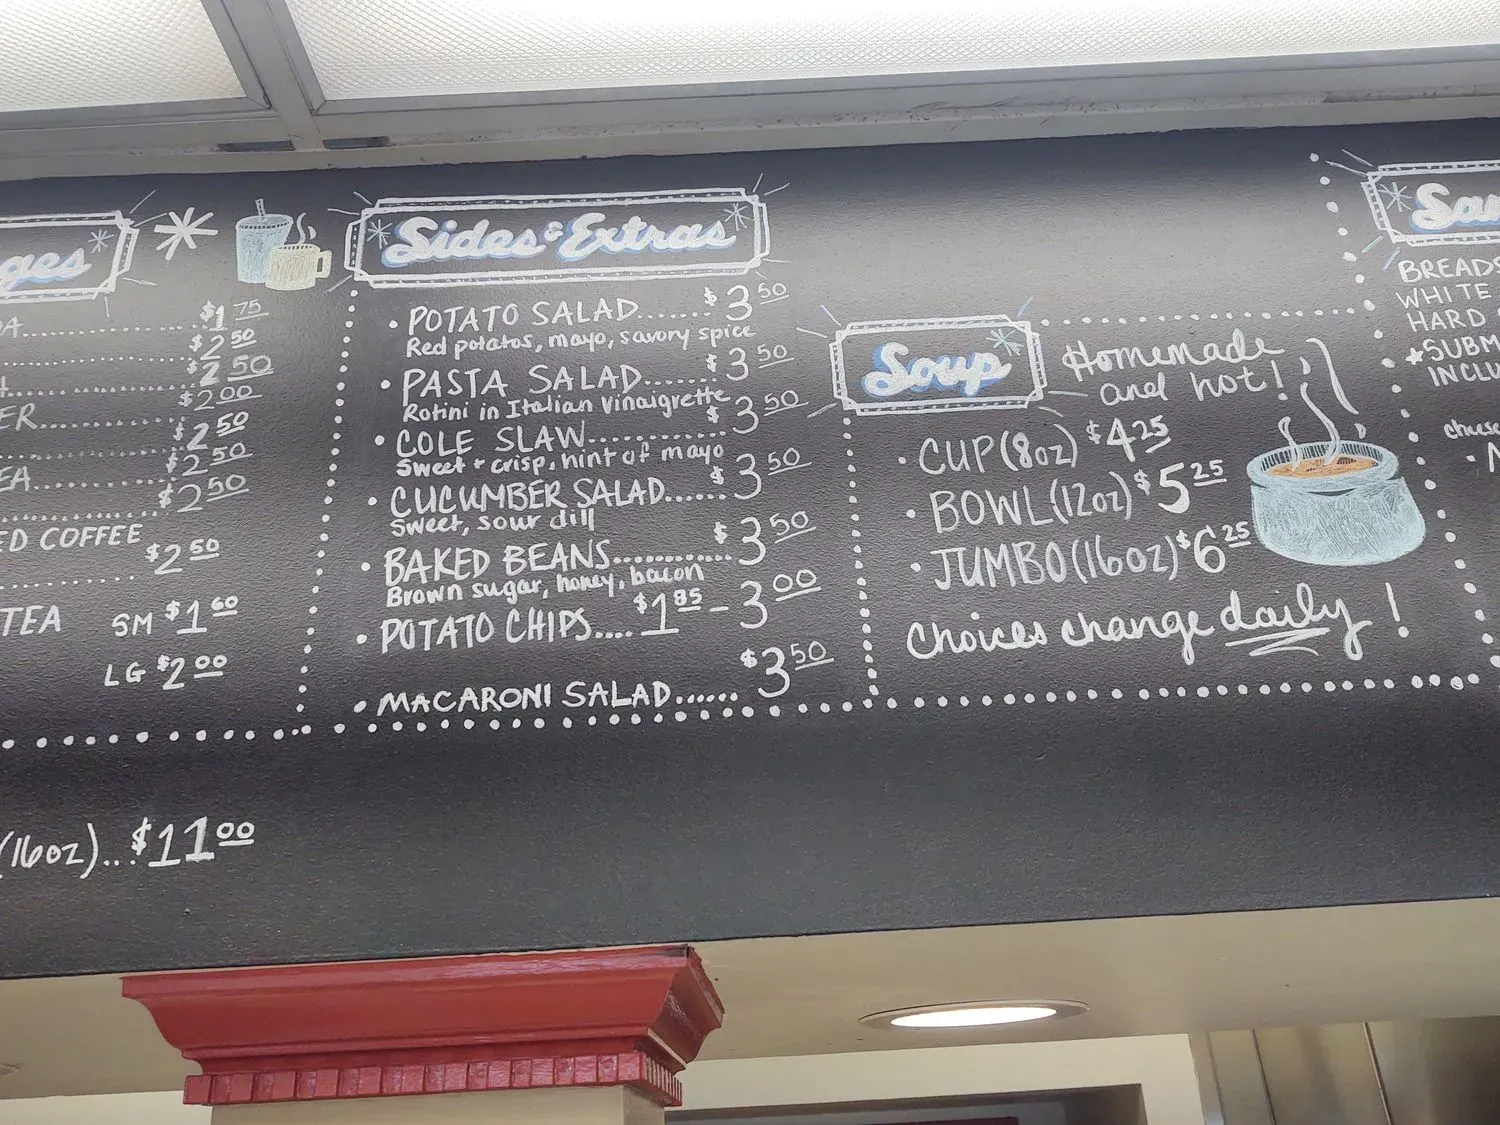 ges
$1 75
$2 50
$2 50
ER $2 00
$2 50
EA $2 50
$2 50
ED COFFEE
$2 50
TEA SM $1 60
LG $2 00
(16oz)...$11 00
Sides & Extras
• POTATO SALAD....... $3 50
Red potatos, mayo, savory spice
• PASTA SALAD....... $3 50
Rotini in Italian Vinaigrette
• COLE SLAW............ $3 50
Sweet + crisp, hint of mayo
• CUCUMBER SALAD...... $3 50
Sweet, sour dill
• BAKED BEANS............ $3 50
Brown sugar, honey, bacon
• POTATO CHIPS.... $1 85 - 3 00
• MACARONI SALAD...... $3 50
Soup
Homemade
and hot!
• CUP (8oz) $4 25
• BOWL (12oz) $5 25
• JUMBO (16oz) $6 25
Choices change daily!
BREADS
WHITE
HARD
★SUBM
INCLU
cheese